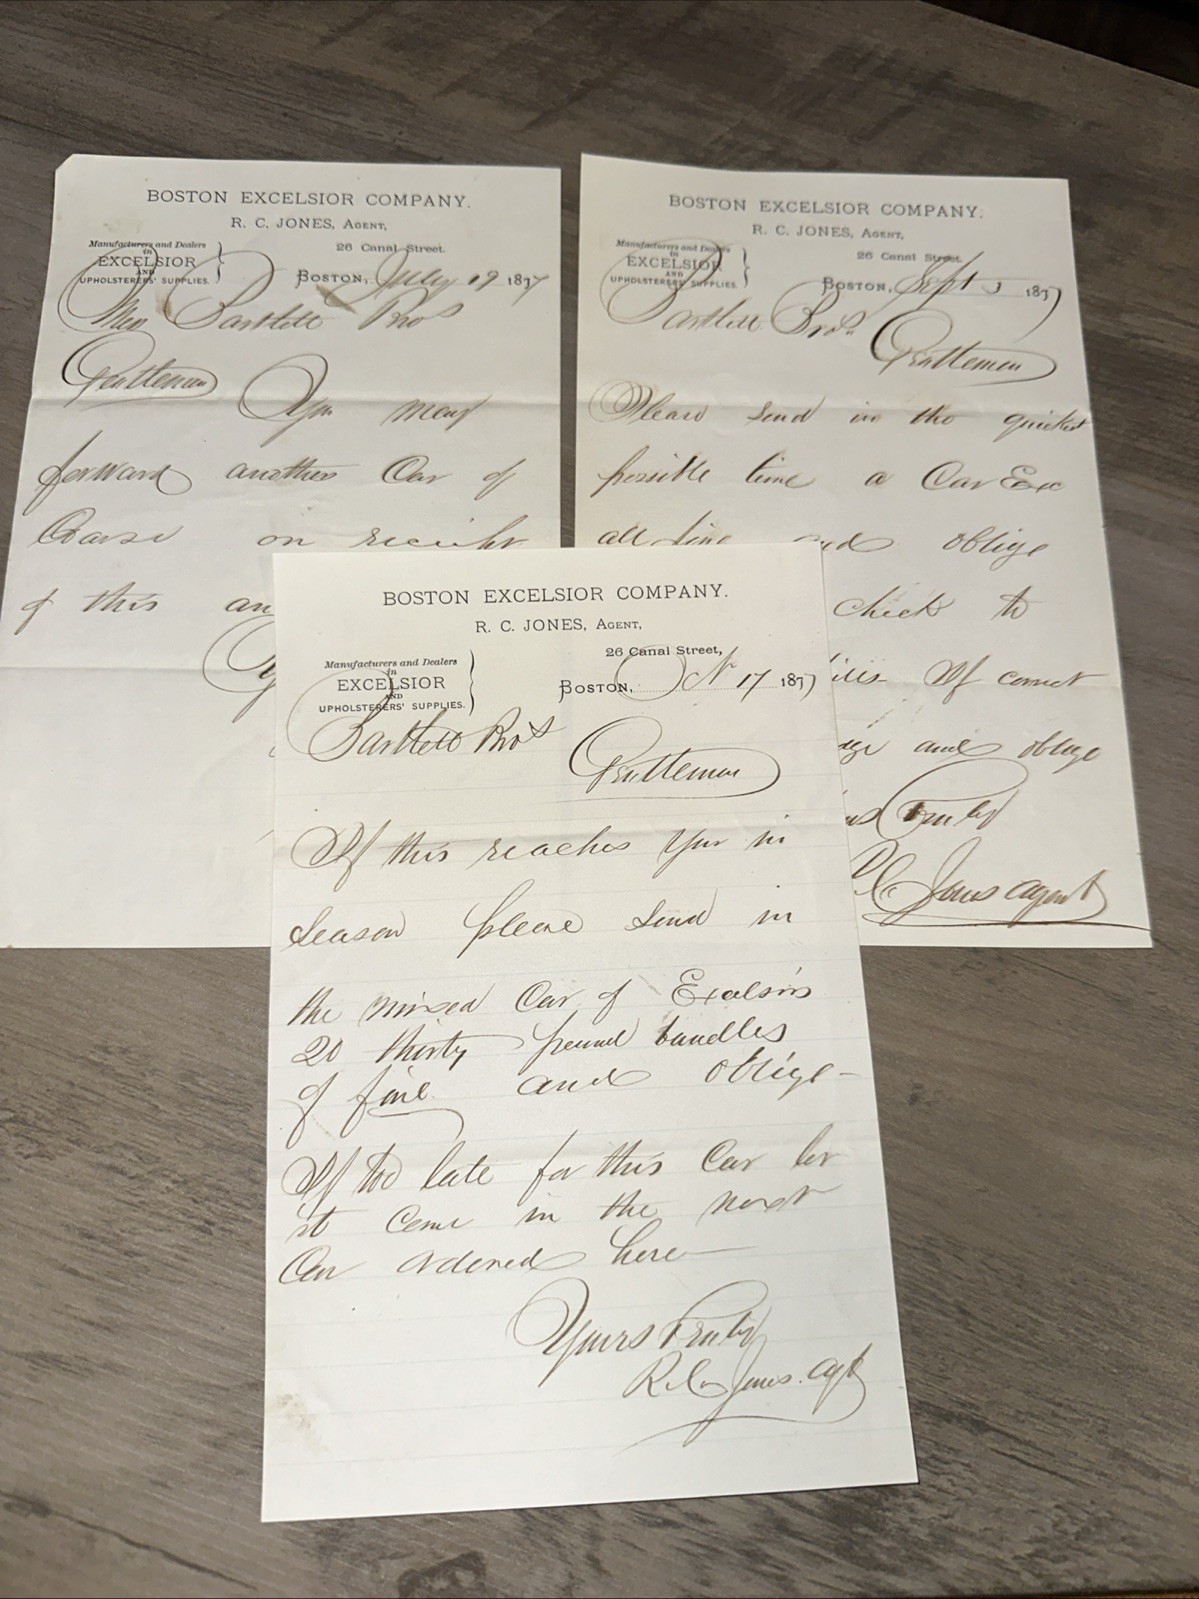 BOSTON EXCELSIOR COMPANY.
R. C. JONES, AGENT,
26 Canal Street.
Manufacturers and Dealers
in
EXCELSIOR
AND
UPHOLSTERERS' SUPPLIES.
BOSTON, July 19 1877
Bartlett Bros
Gentlemen
You may
forward another Car of
Coarse on
of this an
BOSTON EXCELSIOR COMPANY.
R. C. JONES, AGENT,
26 Canal Street.
Manufacturers and Dealers
in
EXCELSIOR
AND
UPHOLSTERERS' SUPPLIES.
BOSTON, Sept 3 1877
Bartlett Bros.
Gentlemen
Please send in the quickest
possible time a Car Exc
all fine and oblige
check to
If correct
and oblige
Truly
R. C. Jones agent
BOSTON EXCELSIOR COMPANY.
R. C. JONES, AGENT,
26 Canal Street,
Manufacturers and Dealers
in
EXCELSIOR
AND
UPHOLSTERERS' SUPPLIES.
BOSTON, 17 1877
Bartlett Bros
Gentlemen
If this reaches you in
season please send in
the mixed Car of Excelsior
20 thirty pound bundles
of fine and oblige-
If too late for this Car let
it come in the next
Car ordered here
Yours Truly
R. C. Jones. Agt